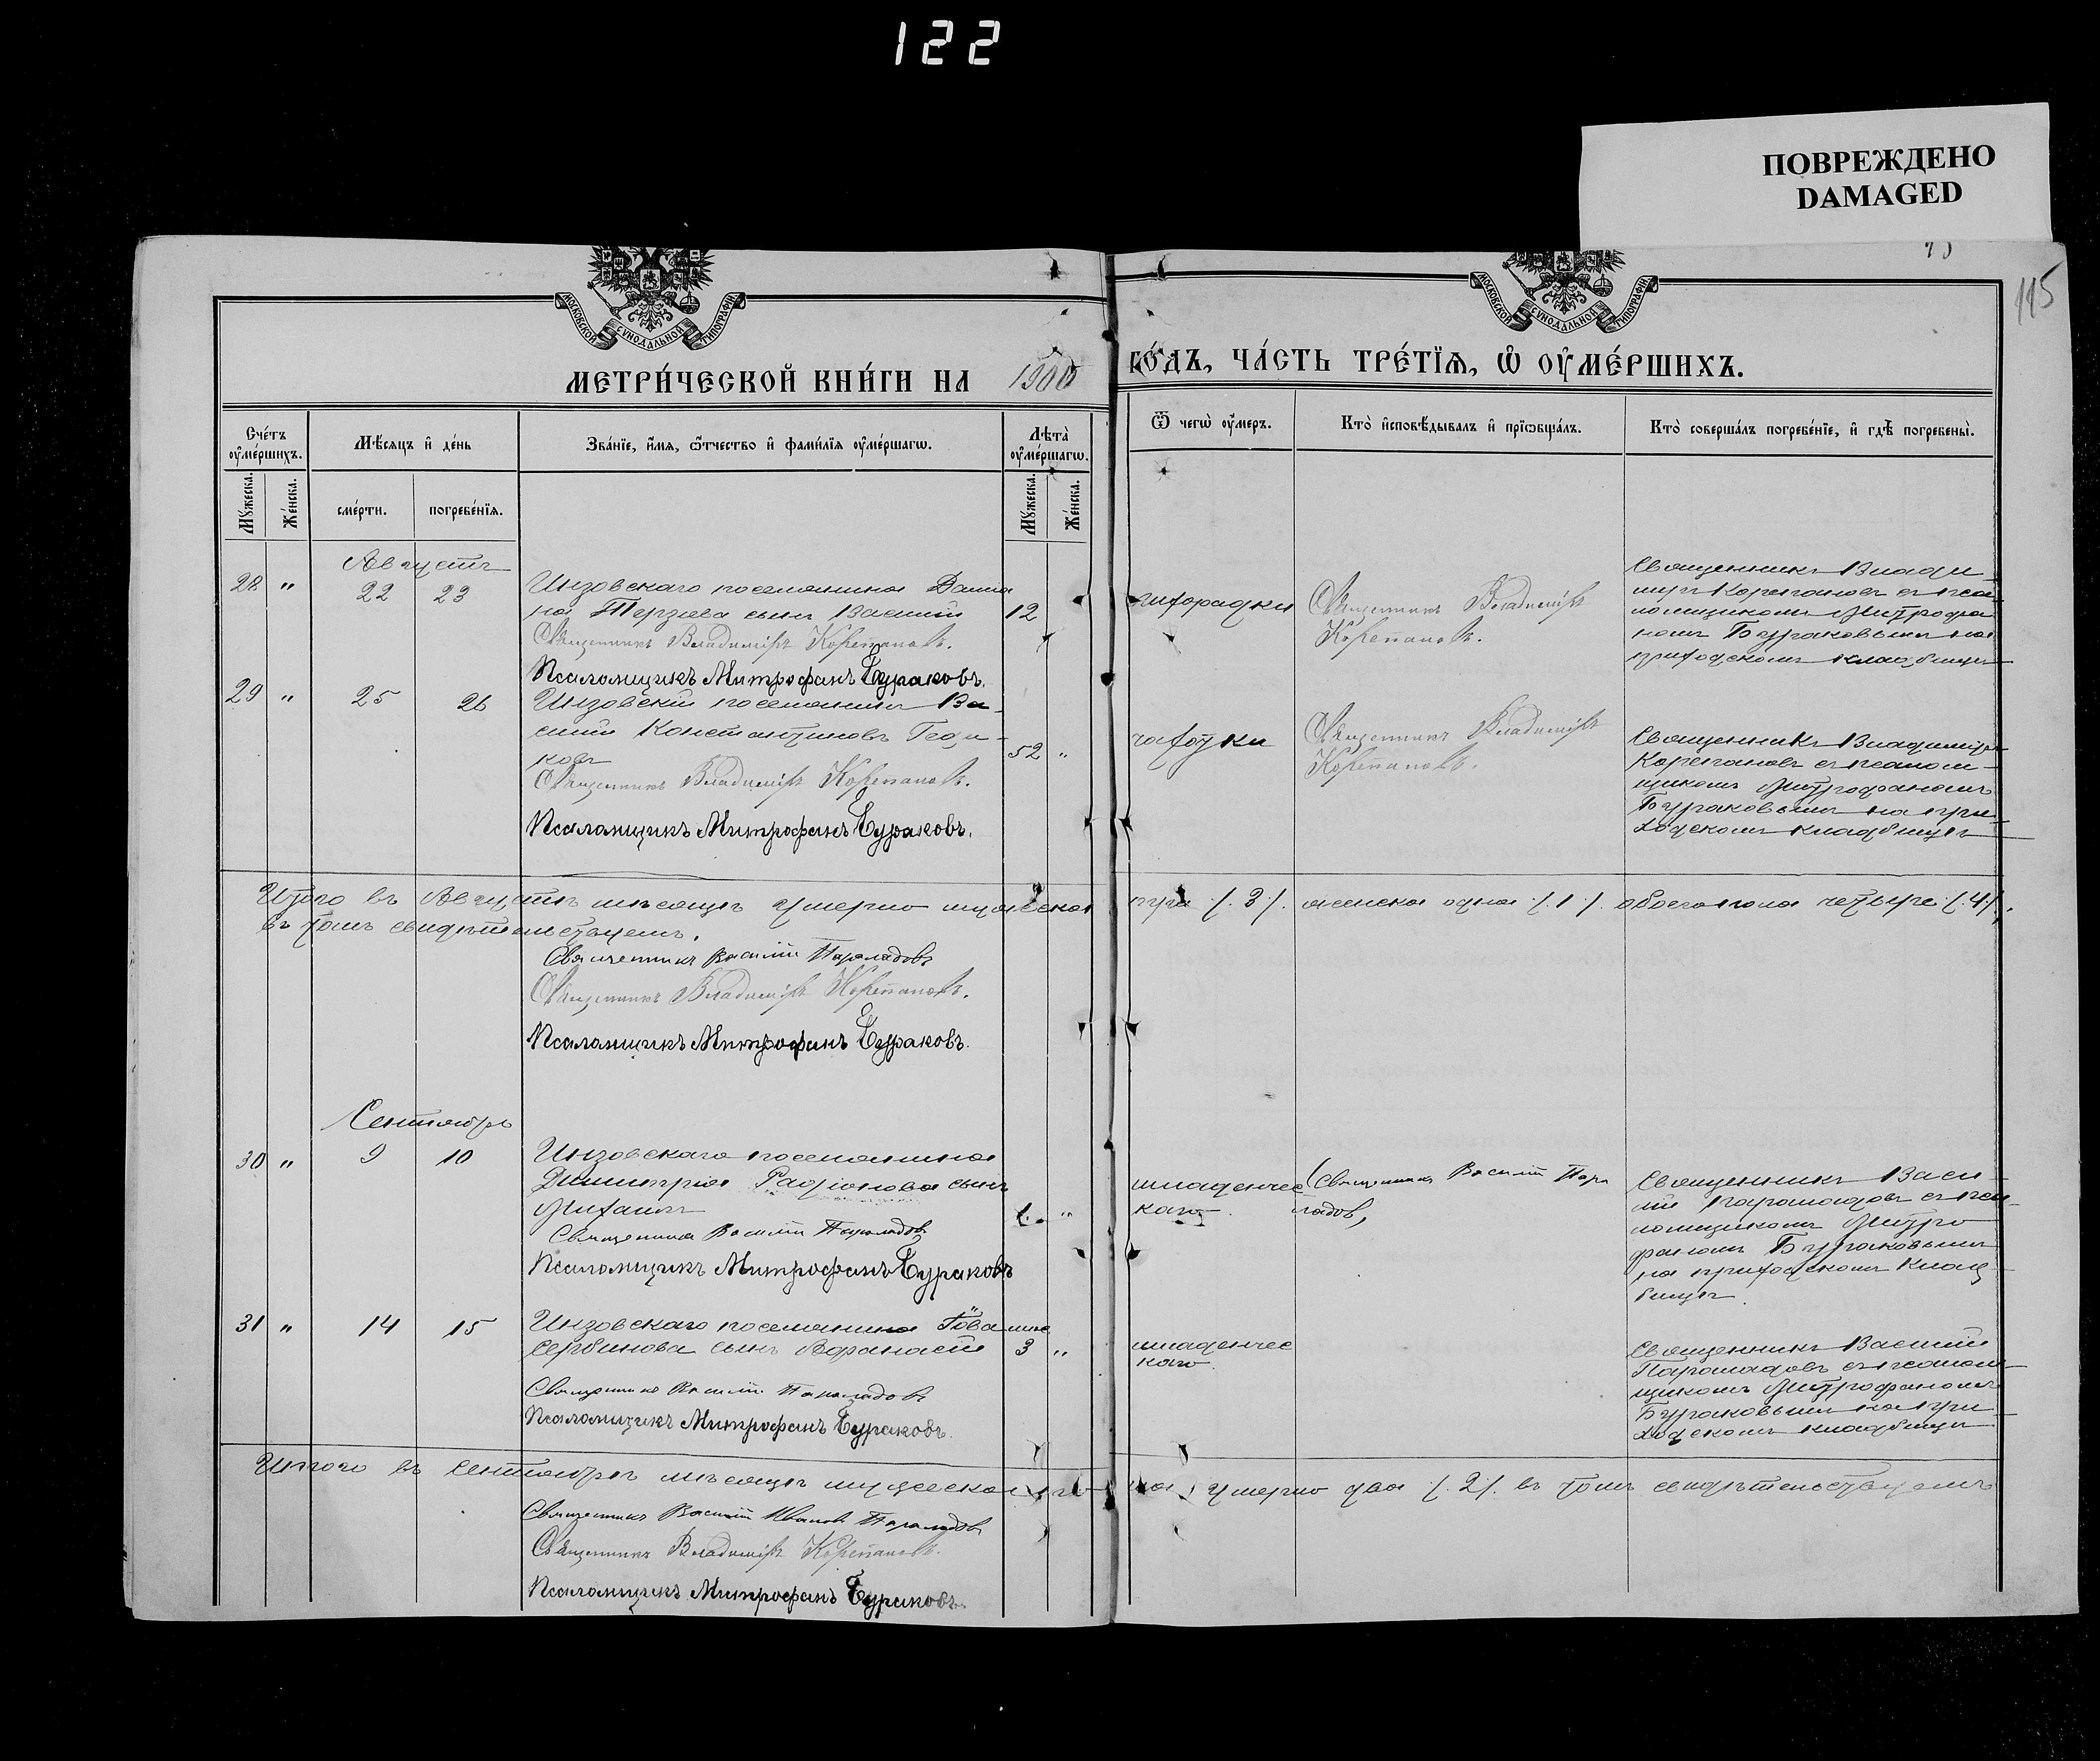 122
ПОВРЕЖДЕНО
DAMAGED
115
МОСКОВСКОЙ СУНОДАЛЬНОЙ ТИПОГРАФІИ
МОСКОВСКОЙ СУНОДАЛЬНОЙ ТИПОГРАФІИ
МЕТРИ́ЧЕСКОЙ КНИ́ГИ НА 1900
ГО́ДЪ, ЧА́СТЬ ТРЕ́ТЇѦ, Ѡ҆ ОУ҆МЕ́РШИХЪ.
Сче́тъ оу҆ме́ршихъ.
Мѣ́сяцъ и҆ де́нь
Зва́нїе, и҆́мя, ѻ҆́тчество и҆ фами́лїя оу҆ме́ршагѡ.
Лѣта̀ оу҆ме́ршагѡ.
Ѿ чегѡ̀ оу҆́меръ.
Кто̀ и҆сповѣ́дывалъ и҆ прїѡбща́лъ.
Кто̀ соверша́лъ погребе́нїе, и҆ гдѣ̀ погребены̀.
Мꙋ́жеска.
Же́нска.
сме́рти.
погребе́нїя.
Мꙋ́жеска.
Же́нска.
Августъ
28 " 22 23
Инзовскаго поселянина Дамиа
на Терзиева сынъ Василий 12
Священникъ Владиміръ Корепановъ.
Псаломщикъ Митрофанъ Бураковъ.
лихорадки
Священникъ Владиміръ
Корепановъ.
Священникъ Влади
миръ Корепановъ съ пса
ломщикомъ Митрофа
номъ Бураковымъ на
приходскомъ кладбищѣ
29 " 25 26
Инзовскій поселянинъ Ва
силій Константиновъ
ковъ 52 "
Священникъ Владиміръ Корепановъ.
Псаломщикъ Митрофанъ Бураковъ.
чахотки
Священникъ Владиміръ
Корепановъ.
Священникъ Владиміръ
Корепановъ съ псалом
щикомъ Митрофаномъ
Бураковымъ на при
ходскомъ кладбищѣ
Итого въ Августѣ мѣсяцѣ умерло мужеска
пула /.3./. женска одна /.1./. обоего пола четыре /.4./.
въ томъ свидѣтельствуемъ.
Священникъ Василій Параладовъ
Священникъ Владиміръ Корепановъ.
Псаломщикъ Митрофанъ Бураковъ.
Сентябрь
30 " 9 10
Инзовскаго поселянина
Димитрія Радіонова сынъ
Михаилъ 1. "
Священникъ Василій Параладовъ
Псаломщикъ Митрофанъ Бураковъ
младенчес
каго
Священникъ Василій Пара
ладовъ,
Священникъ Васи
лій Параладовъ съ пса
ломщикомъ Митро
фаномъ Бураковымъ
на приходскомъ клад
бищѣ.
31 " 14 15
Инзовскаго поселянина Іована
Сербинова сынъ Афанасій 3 "
Священникъ Василій Параладовъ
Псаломщикъ Митрофанъ Бураковъ.
младенчес
каго.
Священникъ Василій
Параладовъ съ псалом
щикомъ Митрофаномъ
Бураковымъ на при
ходскомъ кладбищѣ
Итого въ Сентябрѣ мѣсяцѣ мужеска по
ла умерло два /.2/. въ томъ свидѣтельствуемъ
Священникъ Василій Ивановъ Параладовъ
Священникъ Владиміръ Корепановъ.
Псаломщикъ Митрофанъ Бураковъ.